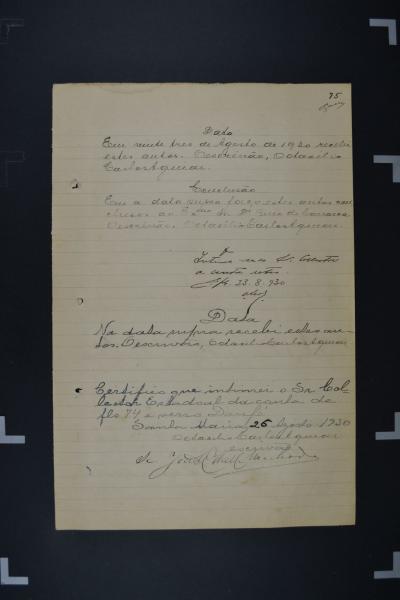 75
Data
Em vinte tres de Agosto de 1930 recebi
estes autos. O escrivão, Octacilio
Carlos Aguiar.
Conclusão
Em a data supra faço estes autos con
clusos ao Exmo Sr. Dr Juiz de Comarca
O escrivão, Octacilio Carlos Aguiar.
Intime-se o Sr. Collector
a conta retro.
23.8.930
Data
Na data supra recebi estes au-
tos. O escrivão, Octacilio Carlos Aguiar
Certifico que intimei o Sr Col-
lector Estadoal da conta de
fls 74 e verso Dou fé.
Santa Maria, 26 Agosto 1930
Octacilio Carlos Aguiar
escrivão